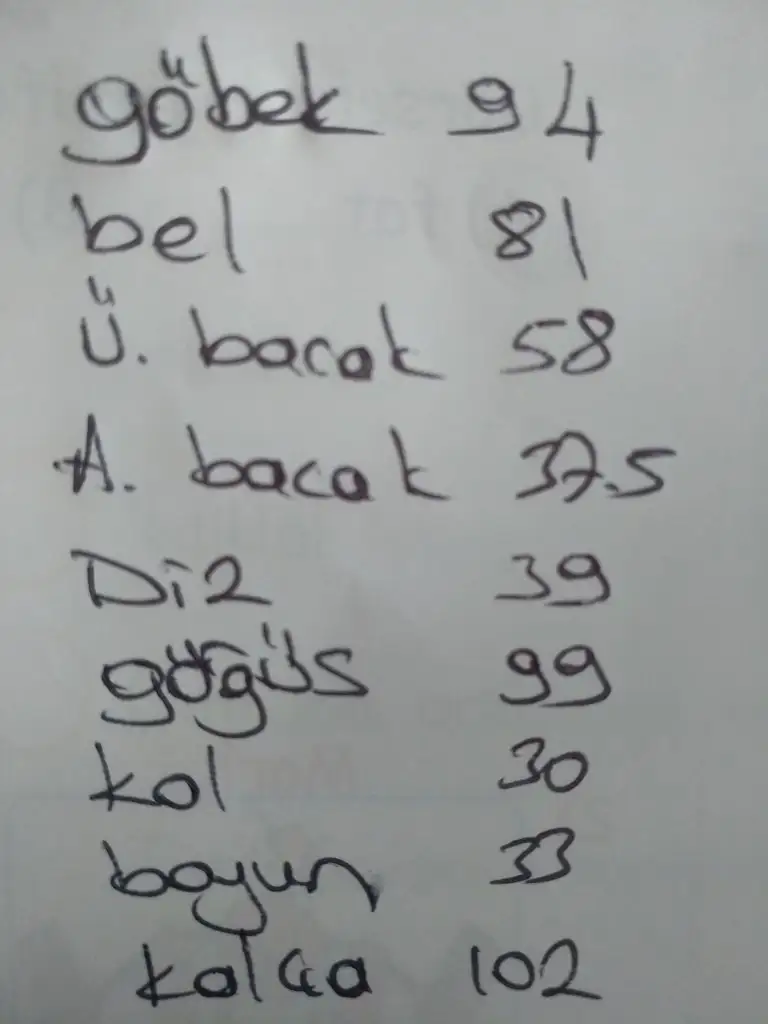 göbek 94
bel 81
Ü. bacak 58
A. bacak 37.5
Diz 39
göğüs 99
kol 30
boyun 33
kalça 102